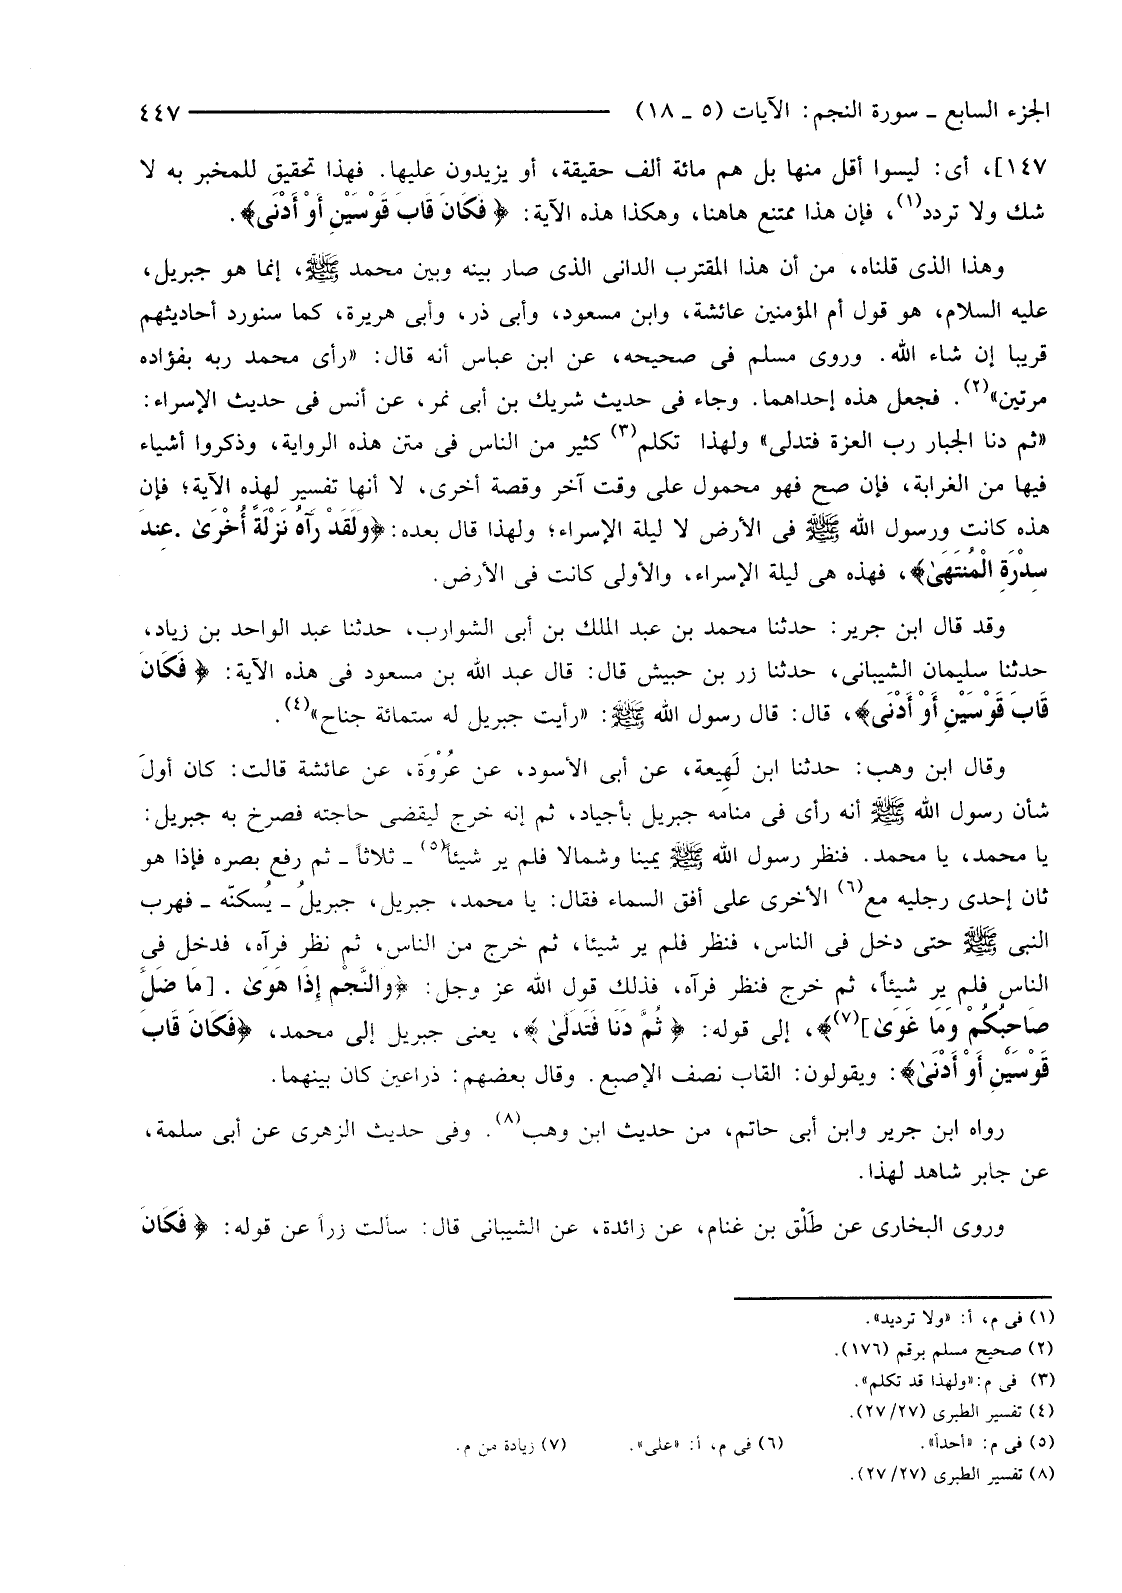 الجزء السابع ـ سورة النجم: الآيات (٥ ـ ١٨) ٤٤٧
١٤٧]، أى: ليسوا أقل منها بل هم مائة ألف حقيقة، أو يزيدون عليها. فهذا تحقيق للمخبر به لا
شك ولا تردد(١)، فإن هذا ممتنع هاهنا، وهكذا هذه الآية: ﴿ فَكَانَ قَابَ قَوْسَيْنِ أَوْ أَدْنَى﴾.
وهذا الذى قلناه، من أن هذا المقترب الدانى الذى صار بينه وبين محمد ﷺ، إنما هو جبريل،
عليه السلام، هو قول أم المؤمنين عائشة، وابن مسعود، وأبى ذر، وأبى هريرة، كما سنورد أحاديثهم
قريبا إن شاء الله. وروى مسلم فى صحيحه، عن ابن عباس أنه قال: «رأى محمد ربه بفؤاده
مرتين»(٢). فجعل هذه إحداهما. وجاء فى حديث شريك بن أبى نمر، عن أنس فى حديث الإسراء:
«ثم دنا الجبار رب العزة فتدلى» ولهذا تكلم(٣) كثير من الناس فى متن هذه الرواية، وذكروا أشياء
فيها من الغرابة، فإن صح فهو محمول على وقت آخر وقصة أخرى، لا أنها تفسير لهذه الآية؛ فإن
هذه كانت ورسول الله ﷺ فى الأرض لا ليلة الإسراء؛ ولهذا قال بعده: ﴿وَلَقَدْ رَآهُ نَزْلَةً أُخْرَىٰ . عِندَ
سِدْرَةِ الْمُنتَهَىٰ﴾، فهذه هى ليلة الإسراء، والأولى كانت فى الأرض.
وقد قال ابن جرير: حدثنا محمد بن عبد الملك بن أبى الشوارب، حدثنا عبد الواحد بن زياد،
حدثنا سليمان الشيبانى، حدثنا زر بن حبيش قال: قال عبد الله بن مسعود فى هذه الآية: ﴿ فَكَانَ
قَابَ قَوْسَيْنِ أَوْ أَدْنَى﴾، قال: قال رسول الله ﷺ: «رأيت جبريل له ستمائة جناح»(٤).
وقال ابن وهب: حدثنا ابن لَهِيعة، عن أبى الأسود، عن عُرْوَة، عن عائشة قالت: كان أولَ
شأن رسول الله ﷺ أنه رأى فى منامه جبريل بأجياد، ثم إنه خرج ليقضى حاجته فصرخ به جبريل:
يا محمد، يا محمد. فنظر رسول الله ﷺ يمينا وشمالا فلم ير شيئاً(٥) ـ ثلاثاً ـ ثم رفع بصره فإذا هو
ثان إحدى رجليه مع(٦) الأخرى على أفق السماء فقال: يا محمد، جبريل، جبريلُ ـ يُسكنّه ـ فهرب
النبى ﷺ حتى دخل فى الناس، فنظر فلم ير شيئا، ثم خرج من الناس، ثم نظر فرآه، فدخل فى
الناس فلم ير شيئاً، ثم خرج فنظر فرآه، فذلك قول الله عز وجل: ﴿وَالنَّجْمِ إِذَا هَوَىٰ . [مَا ضَلَّ
صَاحِبُكُمْ وَمَا غَوَىٰ](٧)﴾، إلى قوله: ﴿ ثُمَّ دَنَا فَتَدَلَّىٰ ﴾، يعنى جبريل إلى محمد، ﴿فَكَانَ قَابَ
قَوْسَيْنِ أَوْ أَدْنَىٰ﴾: ويقولون: القاب نصف الإصبع. وقال بعضهم: ذراعين كان بينهما.
رواه ابن جرير وابن أبى حاتم، من حديث ابن وهب(٨). وفى حديث الزهرى عن أبى سلمة،
عن جابر شاهد لهذا.
وروى البخارى عن طَلْق بن غنام، عن زائدة، عن الشيبانى قال: سألت زراً عن قوله: ﴿ فَكَانَ
(١) فى م، أ: «ولا ترديد».
(٢) صحيح مسلم برقم (١٧٦).
(٣) فى م:«ولهذا قد تكلم».
(٤) تفسير الطبرى (٢٧/ ٢٧).
(٥) فى م: «أحداً». (٦) فى م، أ: «على». (٧) زيادة من م.
(٨) تفسير الطبرى (٢٧/ ٢٧).